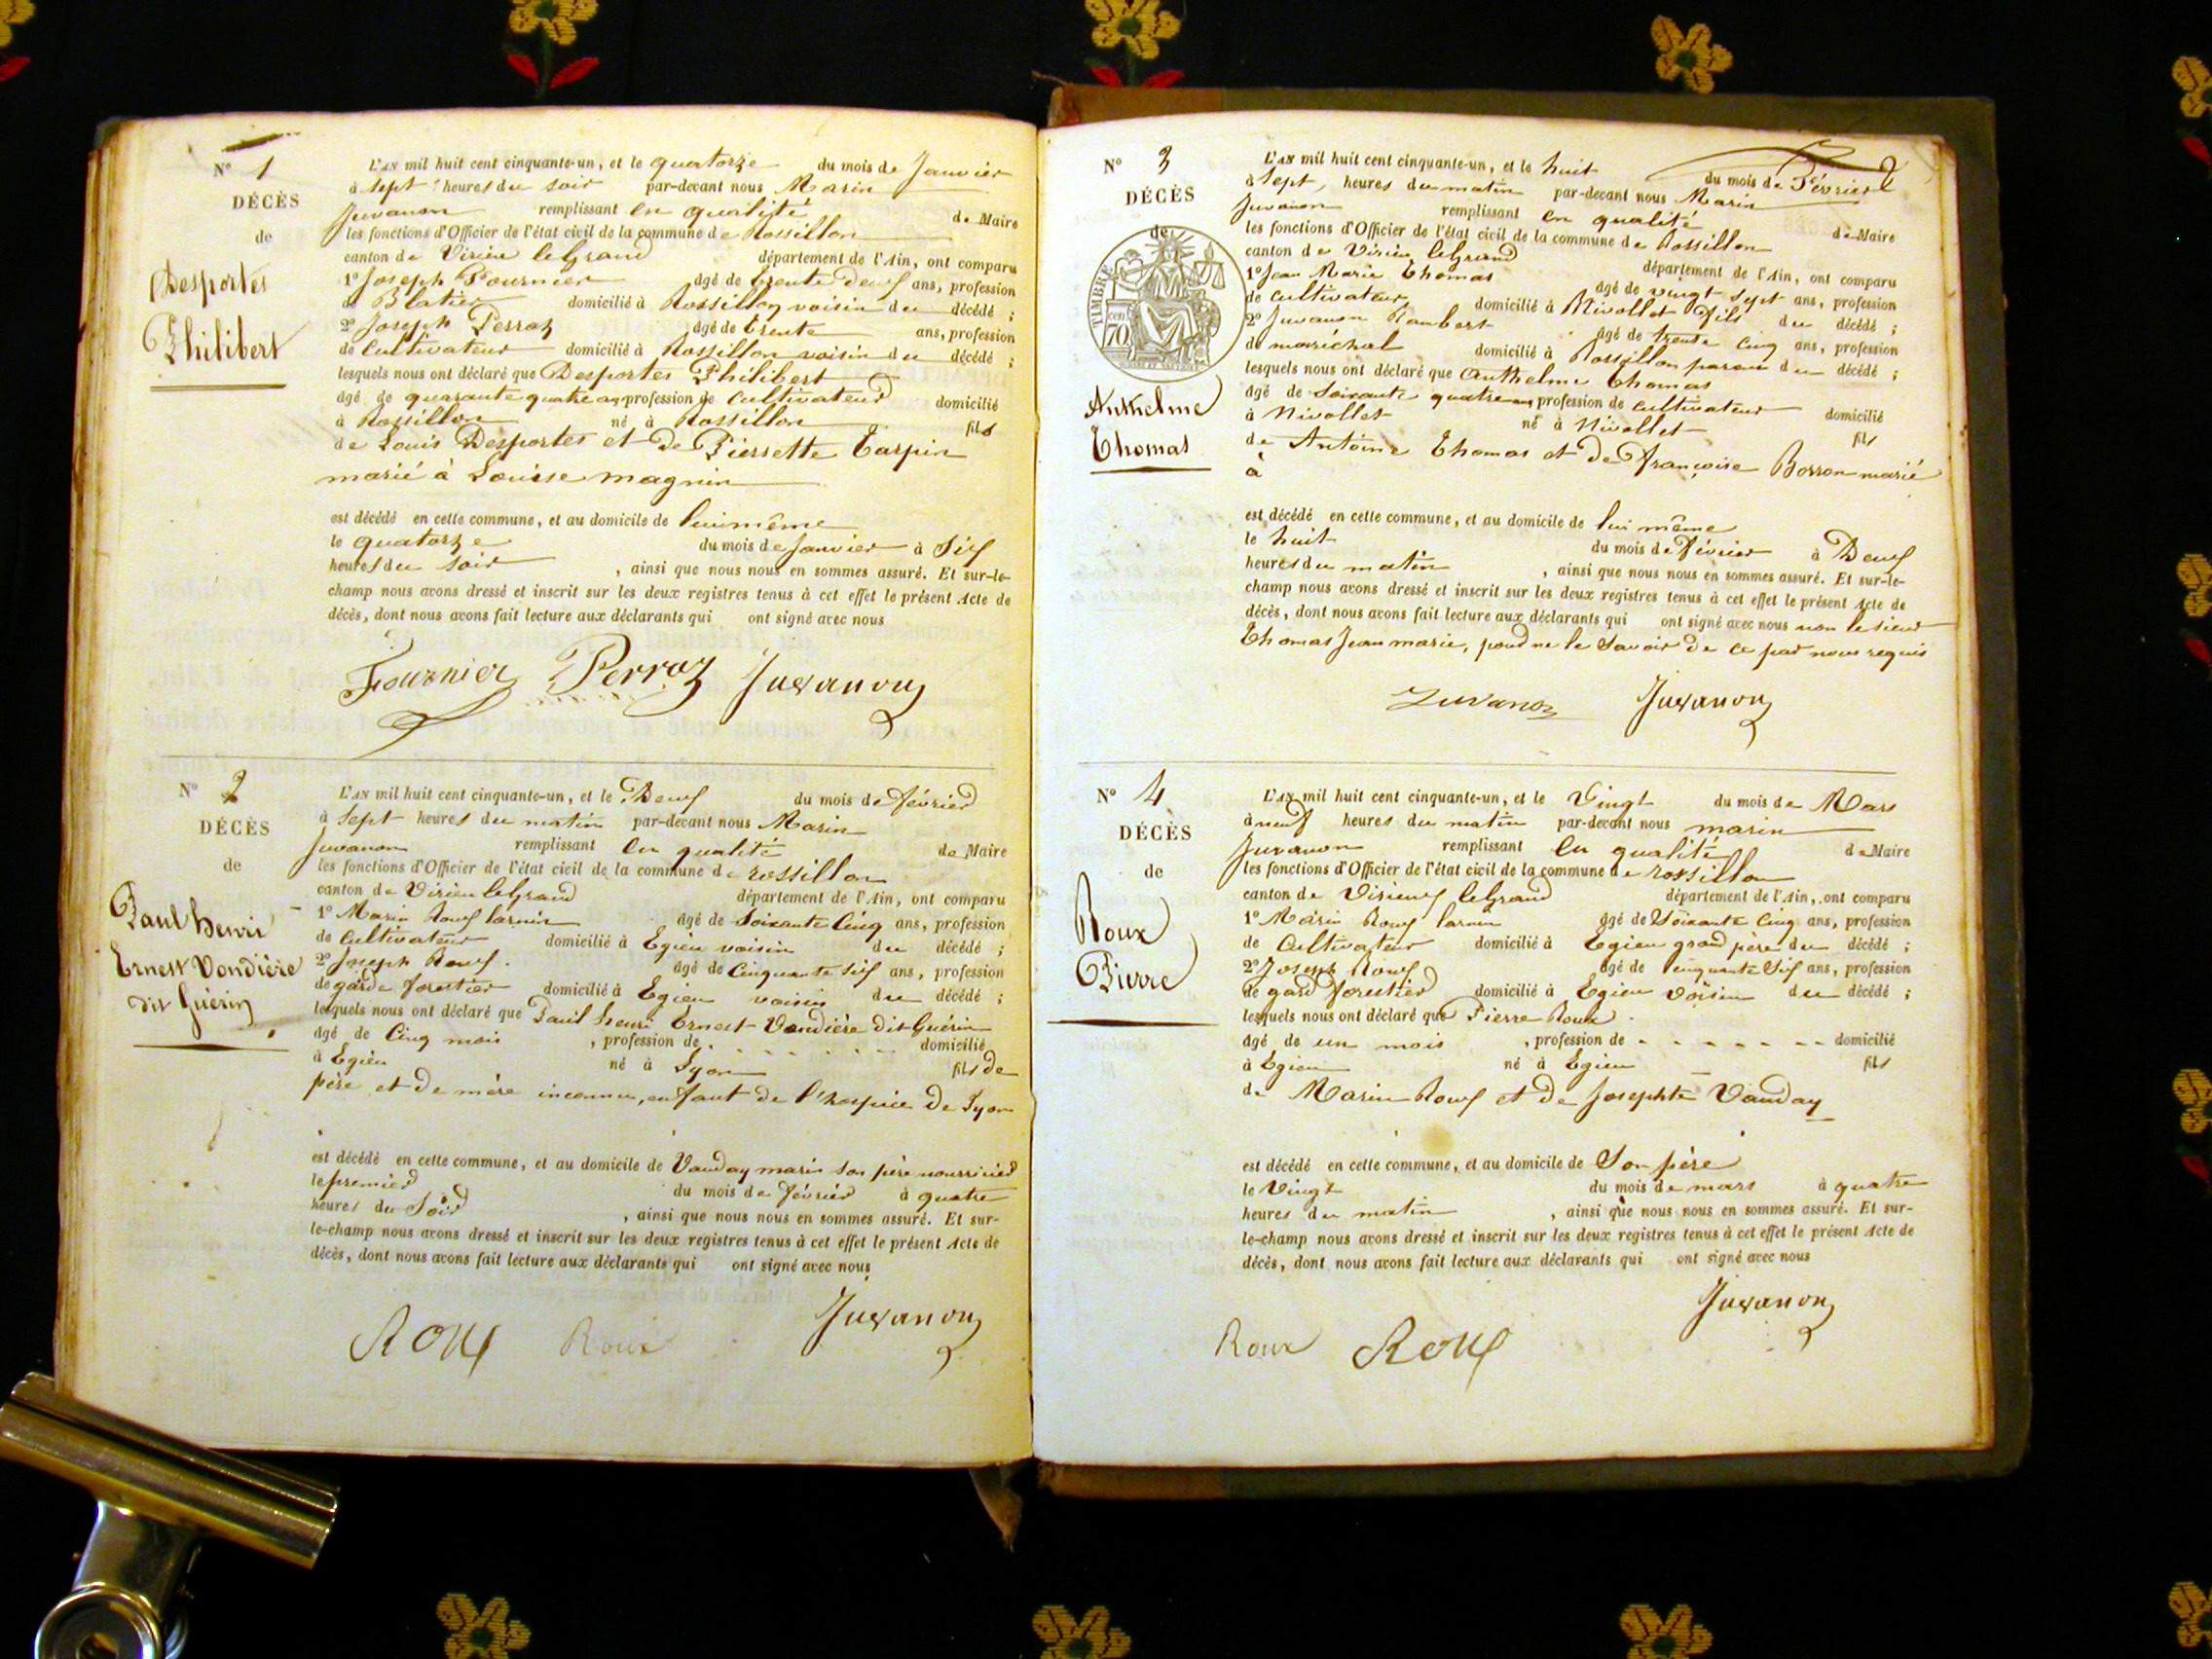 N° 1
DÉCÈS
de
Desportes
Philibert
L'AN mil huit cent cinquante-un, et le quatorze du mois de Janvier
à sept heures du soir par-devant nous Marin
Juvanon remplissant en qualité de Maire
les fonctions d'Officier de l'état civil de la commune de Rossillon
canton de Virieu leGrand département de l'Ain, ont comparu
1° Joseph Fournier âgé de trente deux ans, profession
de Blatier domicilié à Rossillon voisin du décédé ;
2° Joseph Perraz âgé de trente ans, profession
de Cultivateur domicilié à Rossillon voisin du décédé ;
lesquels nous ont déclaré que Desportes Philibert
âgé de quarante quatre ans profession de Cultivateur domicilié
à Rossillon né à Rossillon fils
de Louis Desportes et de Pierrette Tarpin
marié à Louise Magnin
est décédé en cette commune, et au domicile de lui même
le quatorze du mois de Janvier à Six
heures du soir , ainsi que nous nous en sommes assuré. Et sur-le-
champ nous avons dressé et inscrit sur les deux registres tenus à cet effet le présent Acte de
décès, dont nous avons fait lecture aux déclarants qui ont signé avec nous
Fournier Perraz Juvanon
N° 2
DÉCÈS
de
Paul henri
Ernest Vondière
dit Guérin
L'AN mil huit cent cinquante-un, et le Deux du mois de février
à Sept heures du matin par-devant nous Marin
Juvanon remplissant en qualité de Maire
les fonctions d'Officier de l'état civil de la commune de rossillon
canton de Virieu leGrand département de l'Ain, ont comparu
1° Marin Roux larmin âgé de Soixante Cinq ans, profession
de Cultivateur domicilié à Egieu voisin du décédé ;
2° Joseph Roux âgé de Cinquante six ans, profession
de garde forestier domicilié à Egieu voisin du décédé ;
lesquels nous ont déclaré que Paul henri Ernest Vondière dit Guérin
âgé de Cinq mois , profession de domicilié
à Egieu né à Lyon fils de
père et de mère inconnu, enfant de l'hospice de Lyon
est décédé en cette commune, et au domicile de Vauday marin son père nourricier
le premier du mois de février à quatre
heures du Soir , ainsi que nous nous en sommes assuré. Et sur-
le-champ nous avons dressé et inscrit sur les deux registres tenus à cet effet le présent Acte de
décès, dont nous avons fait lecture aux déclarants qui ont signé avec nous
Roux Roux Juvanon
2
N° 3
DÉCÈS
de
TIMBRE
70 cen
Anthelme
Thomas
L'AN mil huit cent cinquante-un, et le huit du mois de Février
à Sept, heures du matin par-devant nous Marin
Juvanon remplissant en qualité de Maire
les fonctions d'Officier de l'état civil de la commune de Rossillon
canton de Virieu leGrand département de l'Ain, ont comparu
1° Jean Marie Thomas âgé de vingt sept ans, profession
de Cultivateur domicilié à Nivollet fils du décédé ;
2° Juvanon Rambert âgé de trente cinq ans, profession
de maréchal domicilié à Rossillon parain du décédé ;
lesquels nous ont déclaré que Anthelme Thomas
âgé de Soixante quatre ans profession de Cultivateur domicilié
à Nivollet né à Nivollet fils
de Antoine Thomas et de Françoise Borron marié
à
est décédé en cette commune, et au domicile de lui même
le huit du mois de Février à Deux
heures du matin , ainsi que nous nous en sommes assuré. Et sur-le-
champ nous avons dressé et inscrit sur les deux registres tenus à cet effet le présent Acte de
décès, dont nous avons fait lecture aux déclarants qui ont signé avec nous non le sieur
Thomas Jean marie, pour ne le Savoir de ce par nous requis
Juvanon Juvanon
N° 4
DÉCÈS
de
Roux
Pierre
L'AN mil huit cent cinquante-un, et le Vingt du mois de Mars
à neuf heures du matin par-devant nous marin
Juvanon remplissant en qualité de Maire
les fonctions d'Officier de l'état civil de la commune de rossillon
canton de Virieux leGrand département de l'Ain, ont comparu
1° Marin Roux larmin âgé de Soixante Cinq ans, profession
de Cultivateur domicilié à Egieu grand père du décédé ;
2° Joseph Roux âgé de cinquante Six ans, profession
de gard forestier domicilié à Egieu voisin du décédé ;
lesquels nous ont déclaré que Pierre Roux
âgé de un mois , profession de domicilié
à Egieu né à Egieu fils
de Marin Roux et de Josephte Vauday
est décédé en cette commune, et au domicile de Son père
le Vingt du mois de mars à quatre
heures du matin , ainsi que nous nous en sommes assuré. Et sur-
le-champ nous avons dressé et inscrit sur les deux registres tenus à cet effet le présent Acte de
décès, dont nous avons fait lecture aux déclarants qui ont signé avec nous
Roux Roux Juvanon